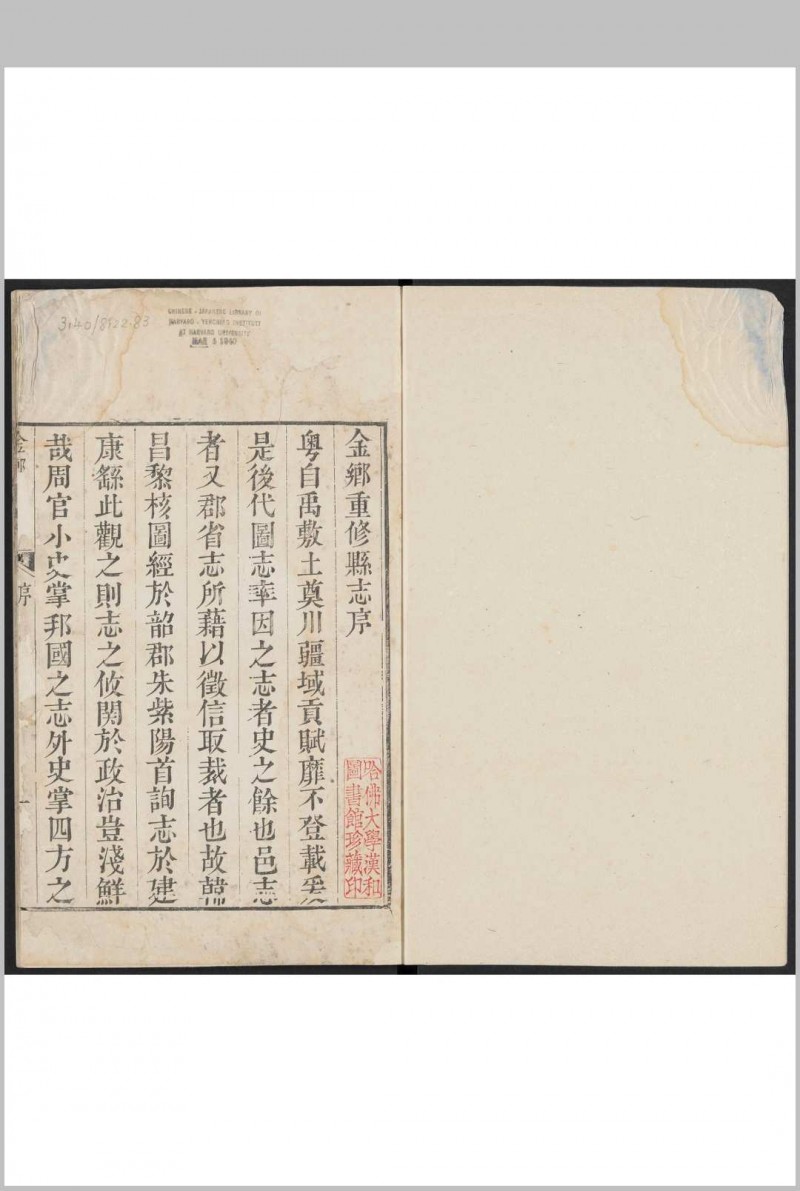 金鄉重修縣志序
粵自禹敷土奠川疆域貢賦靡不登載爰
是後代圖志率因之志者史之餘也邑志
者又郡省志所藉以徵信取裁者也故韓
昌黎核圖經於韶郡朱紫陽首詢志於建
康繇此觀之則志之攸関於政治豈淺鮮
哉周官小史掌邦國之志外史掌四方之
金鄉
序
一
哈佛大學漢和
圖書館珍藏印
3140/8522.83
CHINESE - JAPANESE LIBRARY OF
HARVARD - YENCHING INSTITUTE
AT HARVARD UNIVERSITY
MAR 1 1940